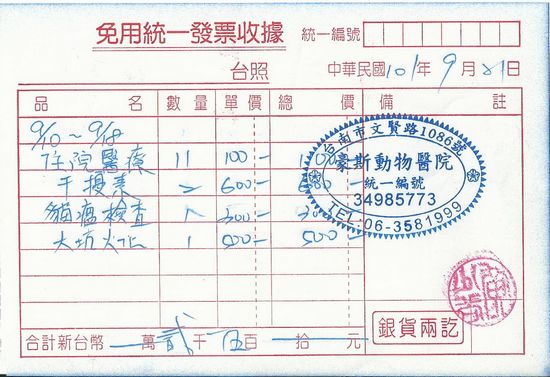 免用統一發票收據 統一編號
台照 中華民國101年9月21日
品名 數量 單價 總價 備註
9/10～9/18
住院醫療 11 100- 1100
干擾素 2 600-
貓瘟檢查 1 300-
火化 1 500- 500-
台南市文賢路1086號
豪斯動物醫院
統一編號
34985773
TEL:06-3581999
合計新台幣 萬貳千伍百 拾 元
銀貨兩訖